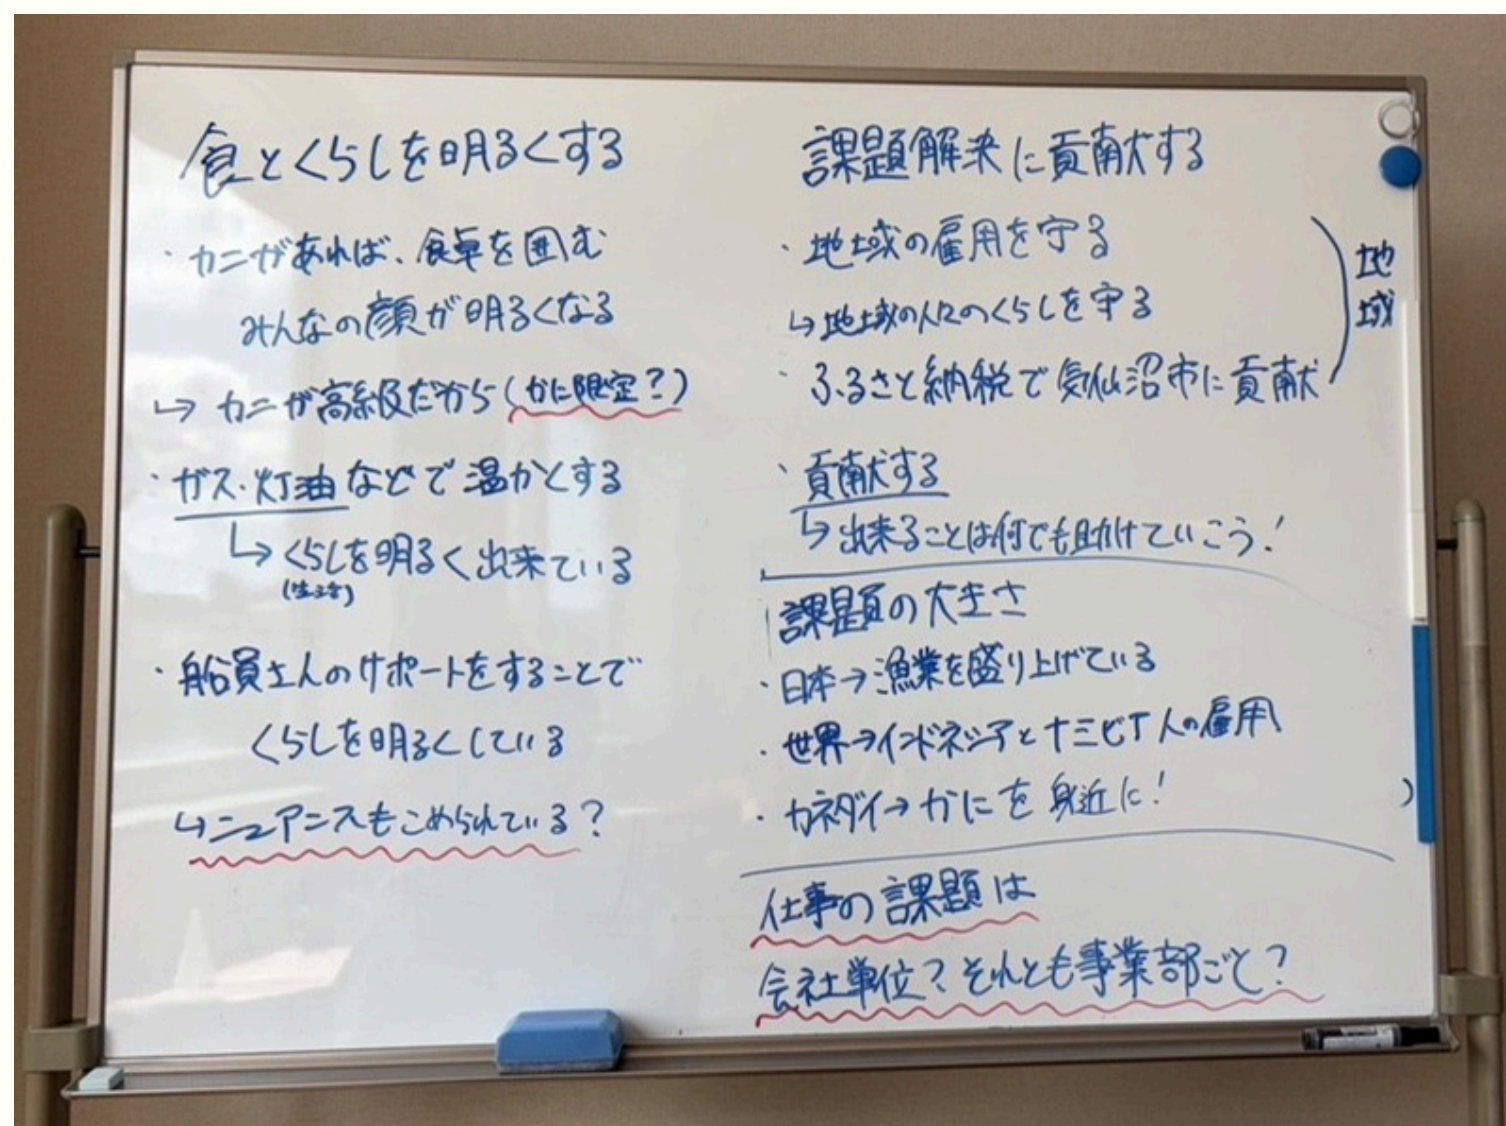 食とくらしを明るくする
・カニがあれば、食卓を囲む
みんなの顔が明るくなる
↳ カニが高級だから(かに限定?)
・ガス・灯油などで温かくする
↳ くらしを明るく出来ている
(生活)
・船員さんのサポートをすることで
くらしを明るくしている
↳ニュアンスもこめられている?
課題解決に貢献する
・地域の雇用を守る
↳地域の人々のくらしを守る
・ふるさと納税で気仙沼市に貢献
地域
・貢献する
↳出来ることは何でも助けていこう!
課題の大きさ
・日本→漁業を盛り上げている
・世界→インドネシアとナミビア人の雇用
・カネダイ→かにを身近に!
仕事の課題は
会社単位?それとも事業部ごと?